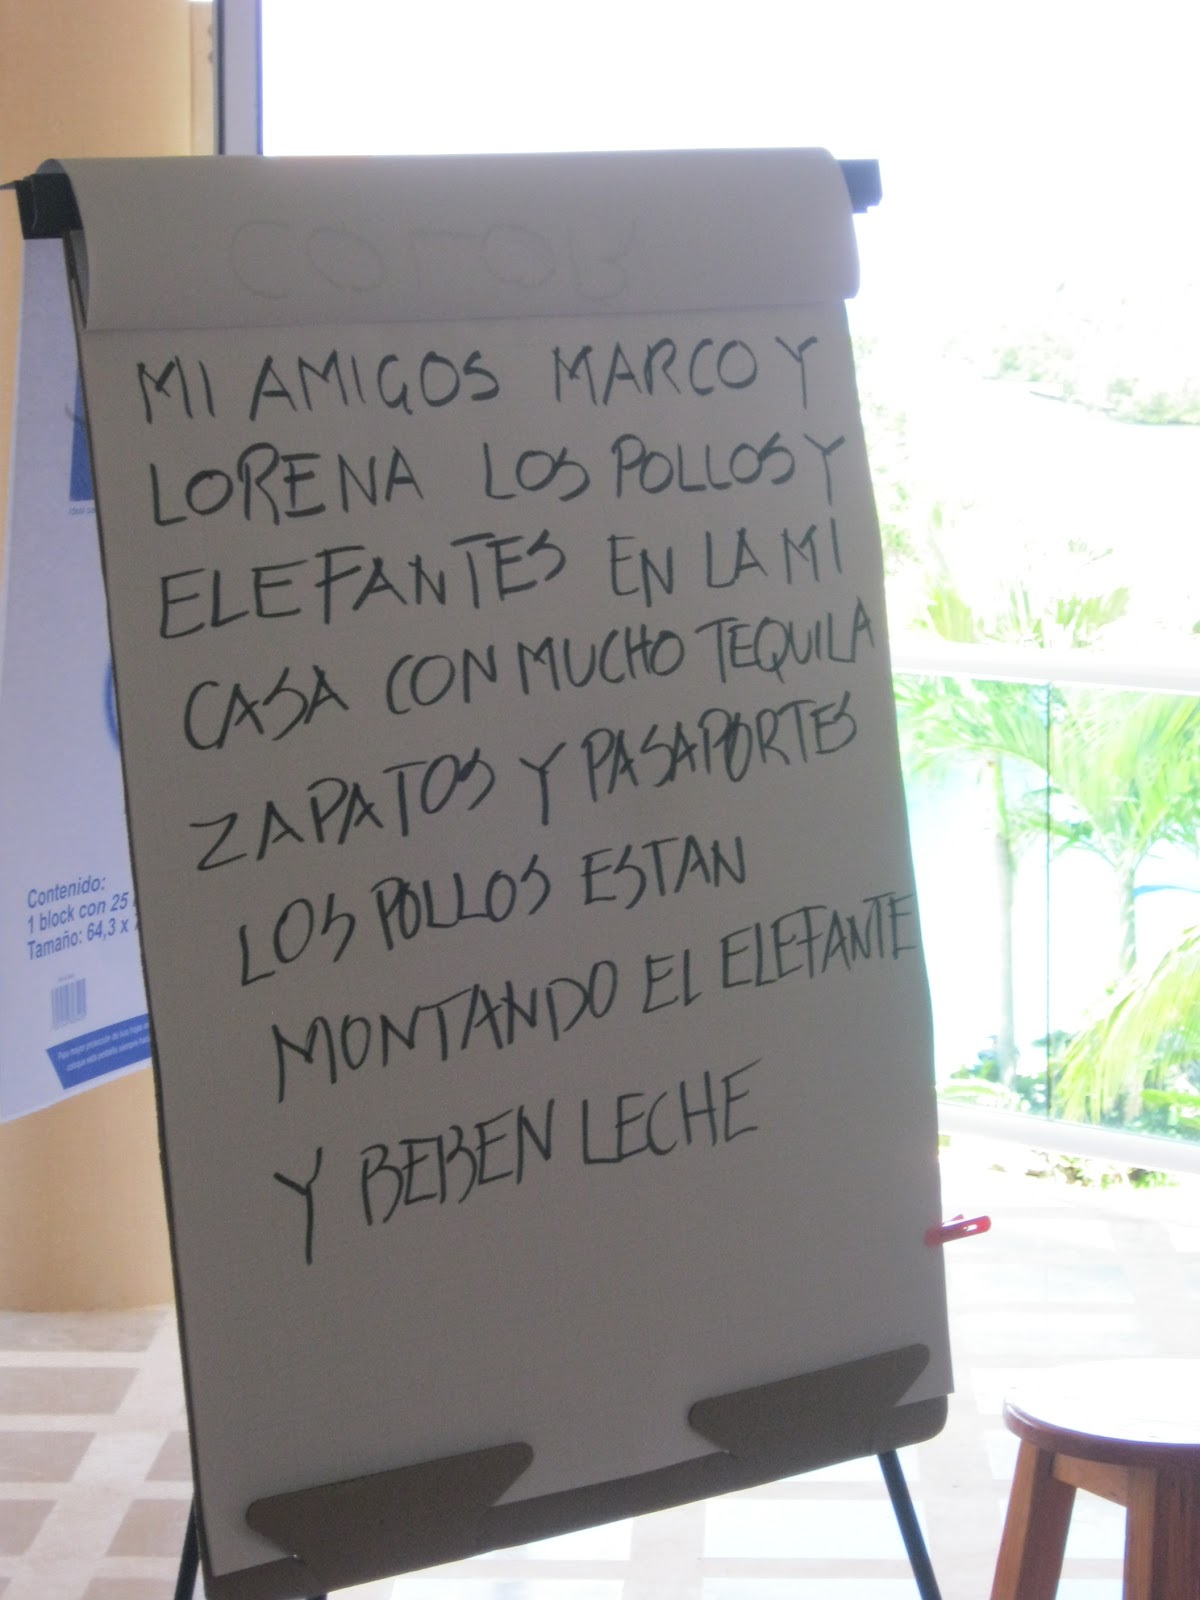 COLOR
MI AMIGOS MARCO Y
LORENA LOS POLLOS Y
ELEFANTES EN LA MI
CASA CON MUCHO TEQUILA
ZAPATOS Y PASAPORTES
LOS POLLOS ESTAN
MONTANDO EL ELEFANTE
Y BEBEN LECHE
Contenido:
1 block con 25
Tamaño: 64,3 x